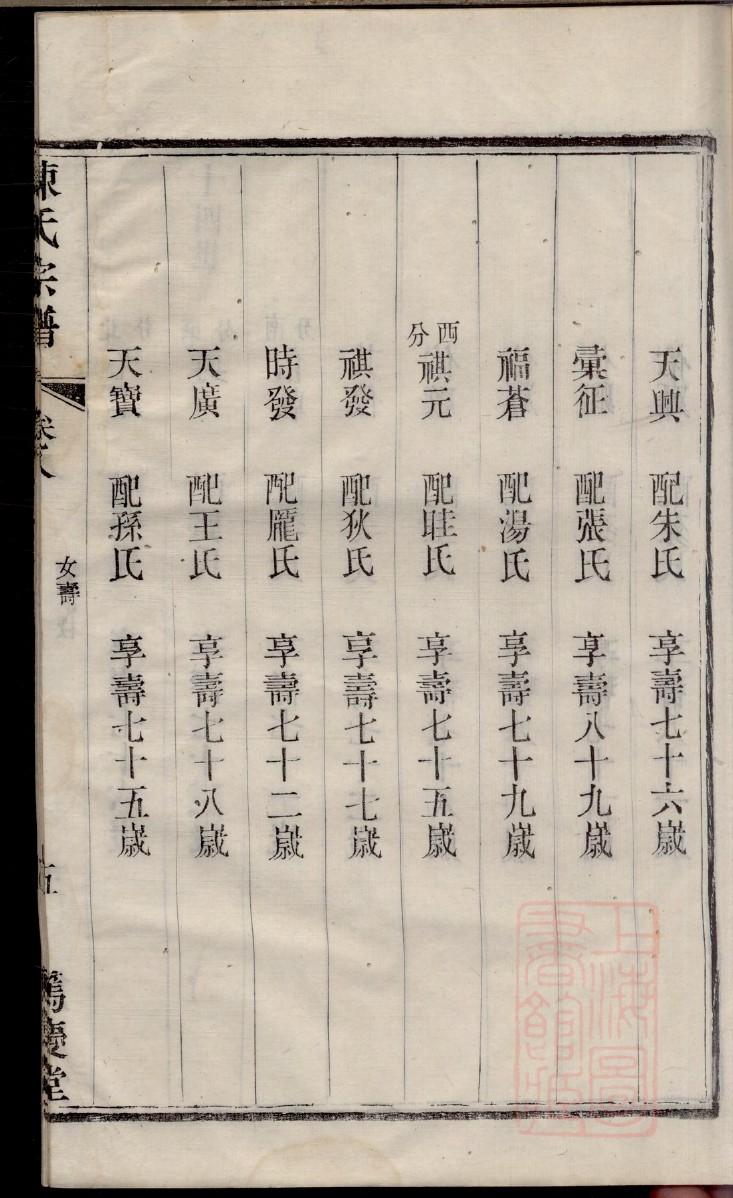 天興 配朱氏 享壽七十六嵗
彙征 配張氏 享壽八十九嵗
福蒼 配湯氏 享壽七十九嵗
西分
祺元 配眭氏 享壽七十五嵗
祺發 配狄氏 享壽七十七嵗
時發 配龐氏 享壽七十二嵗
天廣 配王氏 享壽七十八嵗
天寶 配孫氏 享壽七十五嵗
陳氏宗譜 卷八 女壽 五 篤慶堂
上海圖書館藏